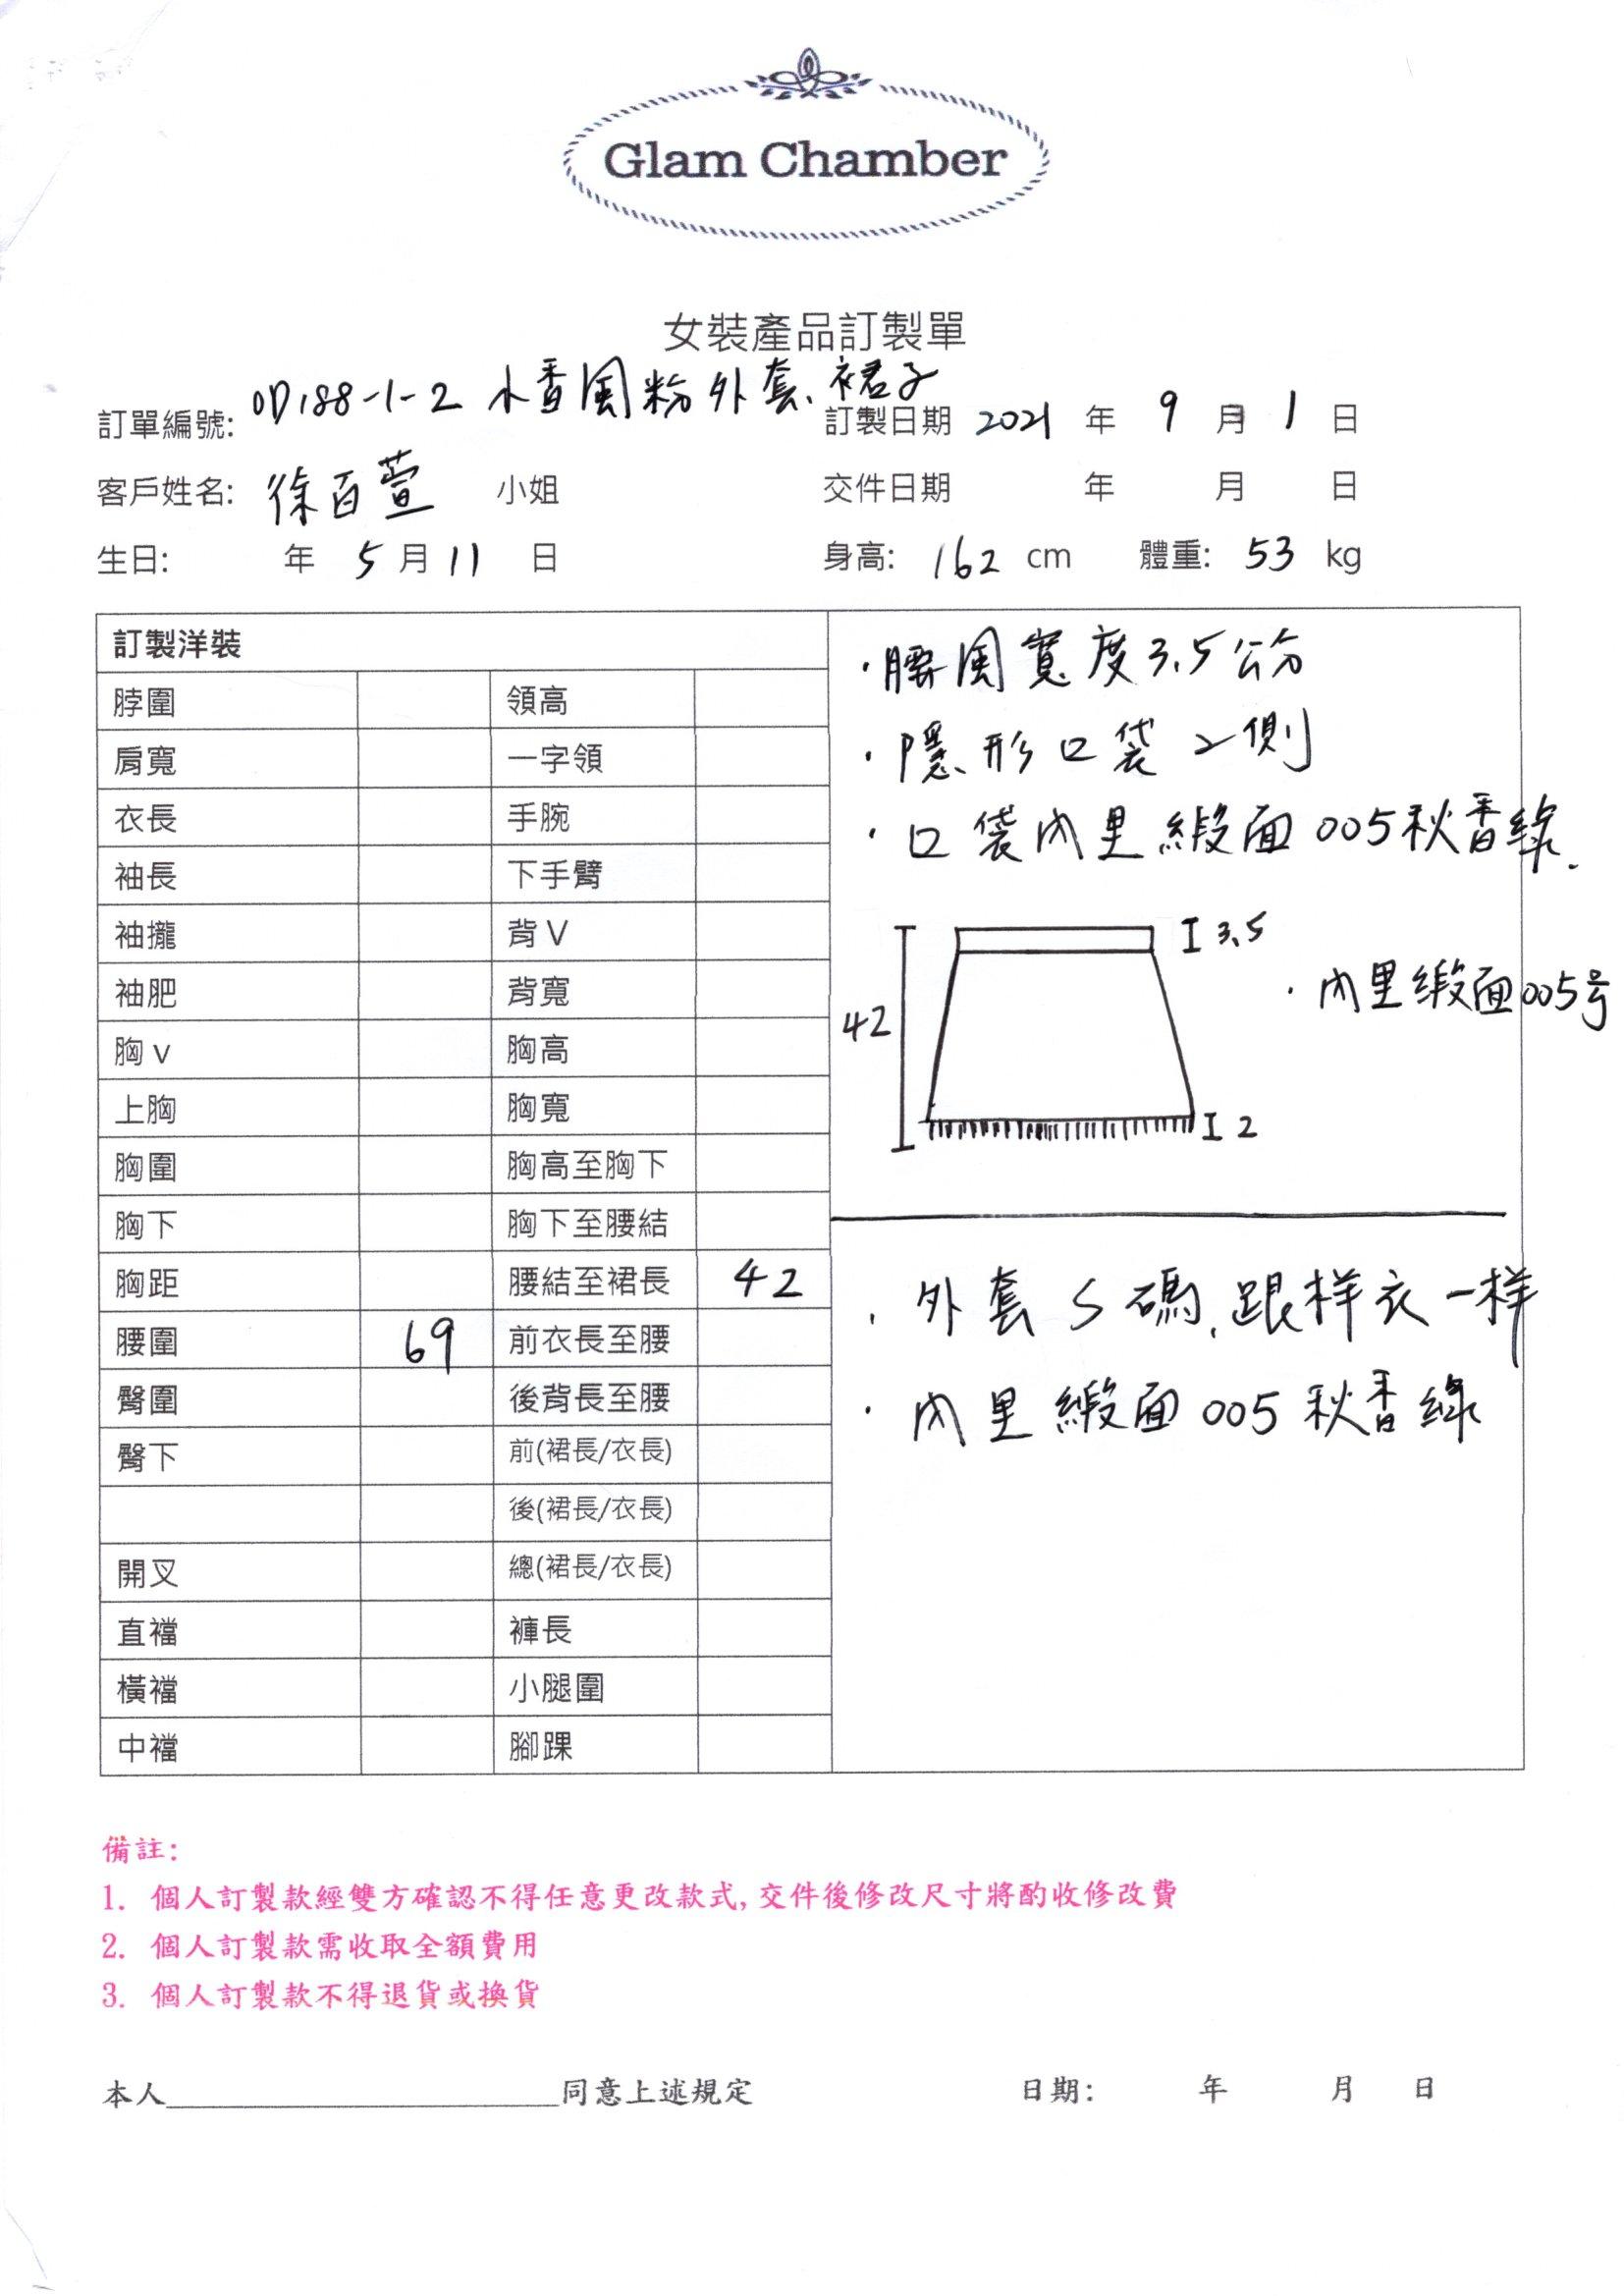 Glam Chamber
女裝產品訂製單
訂單編號: OD188-1-2 小香風粉外套、裙子 訂製日期 2021 年 9 月 1 日
客戶姓名: 徐百萱 小姐 交件日期 年 月 日
生日: 年 5 月 11 日 身高: 162 cm 體重: 53 kg
訂製洋裝
脖圍 領高
肩寬 一字領
衣長 手腕
袖長 下手臂
袖攏 背 V
袖肥 背寬
胸 v 胸高
上胸 胸寬
胸圍 胸高至胸下
胸下 胸下至腰結
胸距 腰結至裙長 42
腰圍 69 前衣長至腰
臀圍 後背長至腰
臀下 前(裙長/衣長)
後(裙長/衣長)
開叉 總(裙長/衣長)
直襠 褲長
橫襠 小腿圍
中襠 腳踝
·腰風寬度3.5公分
·隱形口袋2側
·口袋內里緞面005秋香綠.
3.5
·內里緞面005号
42
2
·外套S碼,跟样衣一样
·內里緞面005秋香綠
備註:
1. 個人訂製款經雙方確認不得任意更改款式,交件後修改尺寸將酌收修改費
2. 個人訂製款需收取全額費用
3. 個人訂製款不得退貨或換貨
本人________________同意上述規定 日期: 年 月 日